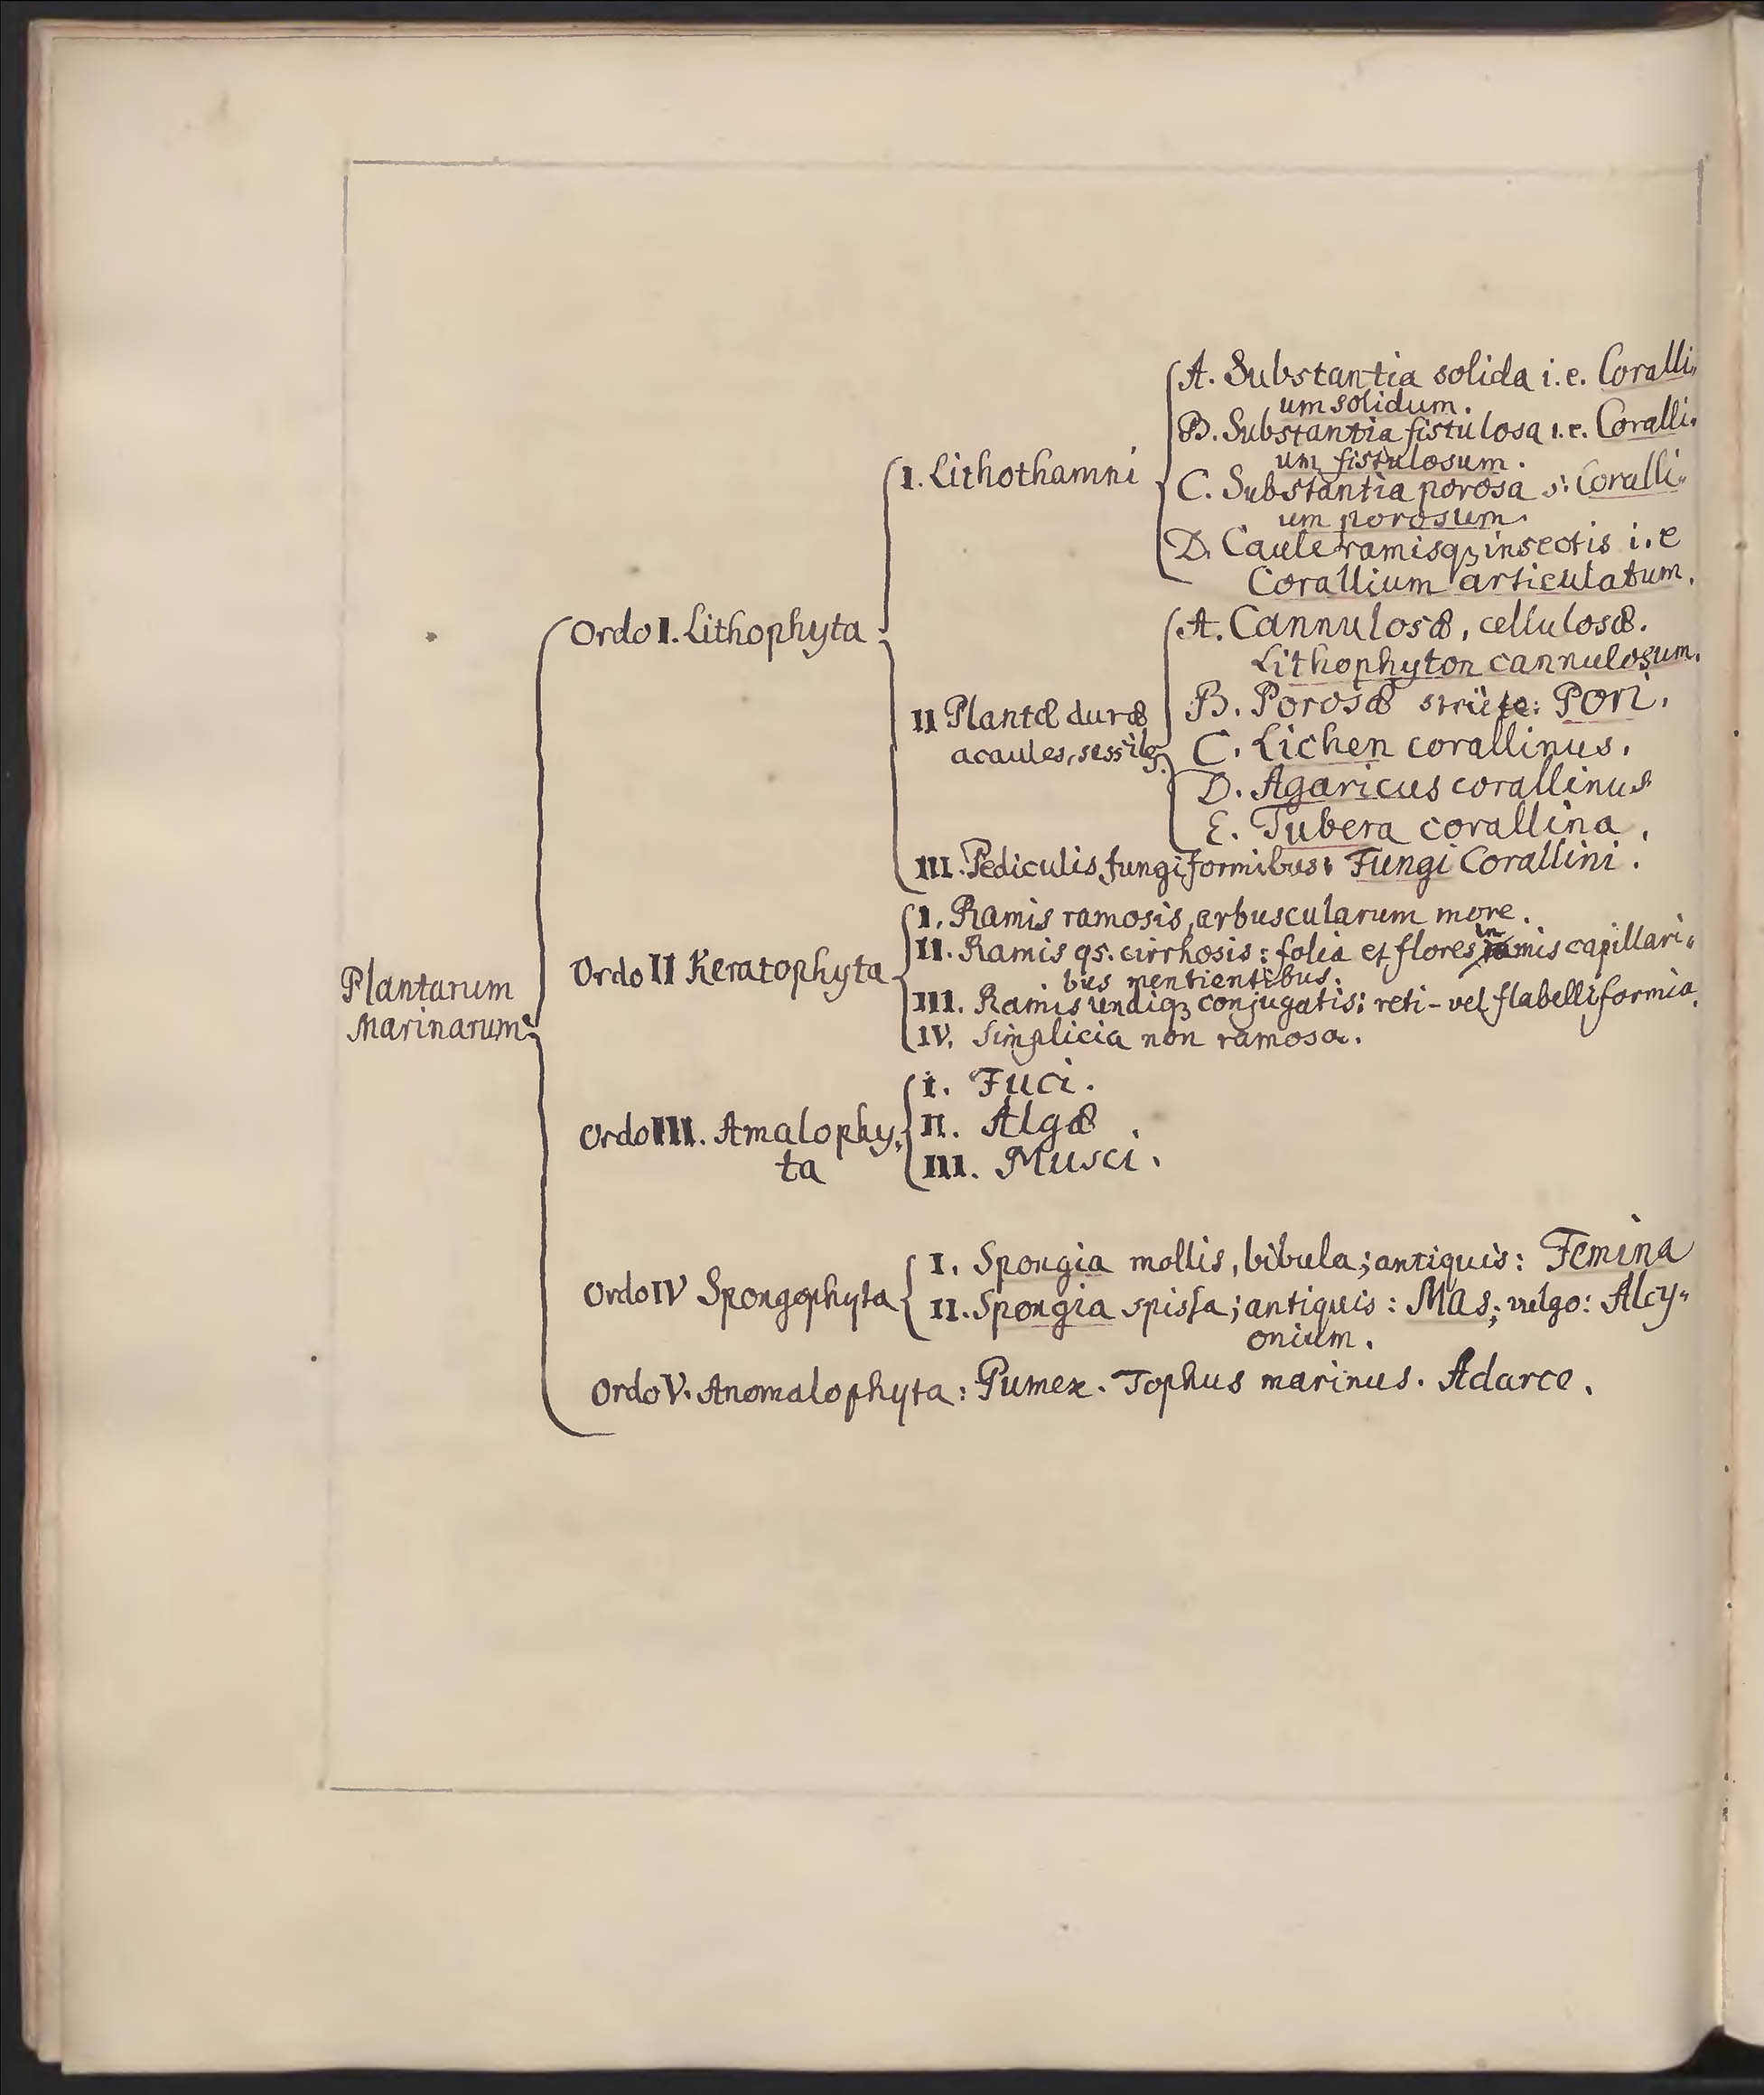 A. Substantia solida i.e. Coralli„
um solidum.
B. Substantia fistulosa i.e. Coralli„
um fistulosum.
I. Lithothamni
C. Substantia porosa s: Coralli„
um porosum.
D. Caule ramisqꝫ insectis i.e
Corallium articulatum.
Ordo I. Lithophyta
A. Cannulosæ, cellulosæ.
Lithophyton cannulosum.
II Plantæ duræ
acaules, sessiles.
B. Porosæ Pori.
C. Lichen corallinus.
D. Agaricus corallinus
E. Tubera corallina.
III. Pediculis fungiformibus: Fungi Corallini.
Plantarum
Marinarum
Ordo II Keratophyta
I. Ramis ramosis, arbuscularum more.
II. Ramis qs. cirrhosis: folia et flores in ramis capillari„
bus mentientibus.
III. Ramis undiqꝫ conjugatis: reti- vel flabelliformia.
IV. Simplicia non ramosa.
Ordo III. Amalophy„
ta
I. Fuci.
II. Algæ.
III. Musci.
Ordo IV Spongophyta
I. Spongia mollis, bibula; antiquis: Femina
II. Spongia spissa; antiquis: Mas; vulgo: Alcy„
onium.
Ordo V. Anomalophyta: Pumex. Tophus marinus. Adarce.